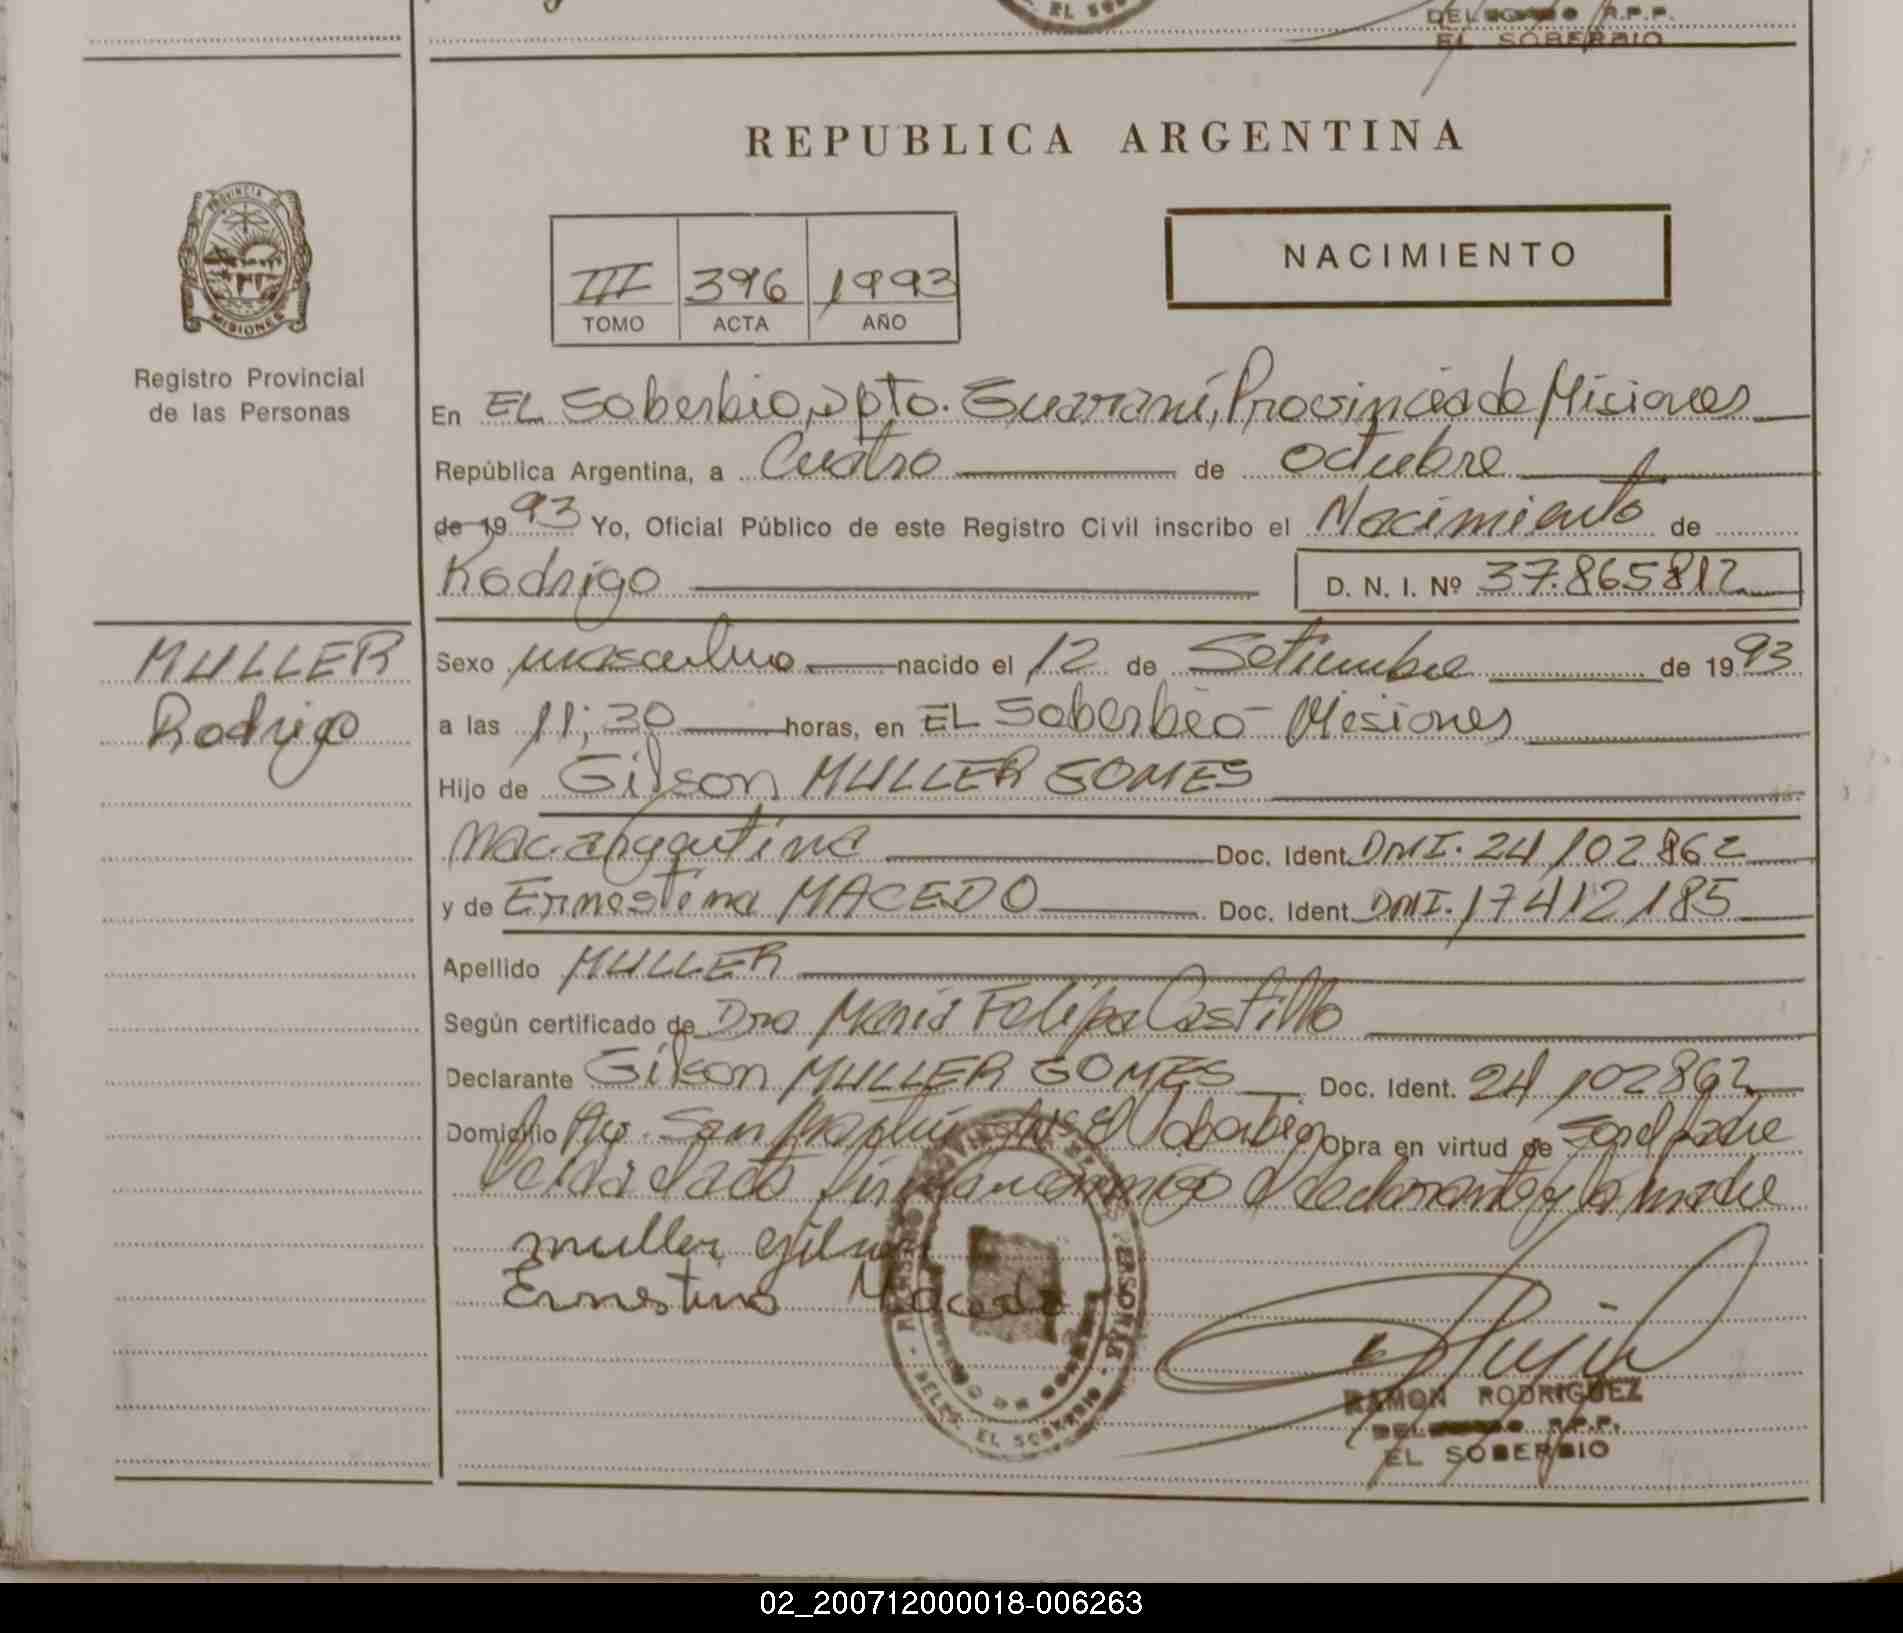 DELEGADO R.P.P.
EL SOBERBIO
REPUBLICA ARGENTINA
PROVINCIA DE
MISIONES
Registro Provincial
de las Personas
III 396 1993
TOMO ACTA AÑO
NACIMIENTO
En EL Soberbio, Dpto. Guaraní, Provincia de Misiones
República Argentina, a Cuatro de octubre
de 1993 Yo, Oficial Público de este Registro Civil inscribo el Nacimiento de
Rodrigo D. N. I. Nº 37.865812
MULLER
Rodrigo
Sexo masculino nacido el 12 de Setiembre de 1993
a las 11;30 horas, en EL Soberbio - Misiones
Hijo de Gilson MULLER GOMES
Nac. argentina Doc. Ident. DNI. 24102862
y de Ernestina MACEDO Doc. Ident. DNI. 17412185
Apellido MULLER
Según certificado de Dra Maria Felipa Castillo
Declarante Gilson MULLER GOMES Doc. Ident. 24102862
Domicilio Av. San Martín El Soberbio Obra en virtud de Ser el padre
Leida el acta firman conmigo el declarante y la madre
muller gilson
Ernestina Macedo
RAMON RODRIGUEZ
DELEGADO R.P.P.
EL SOBERBIO
DELEG. EL SOBERBIO
02_200712000018-006263